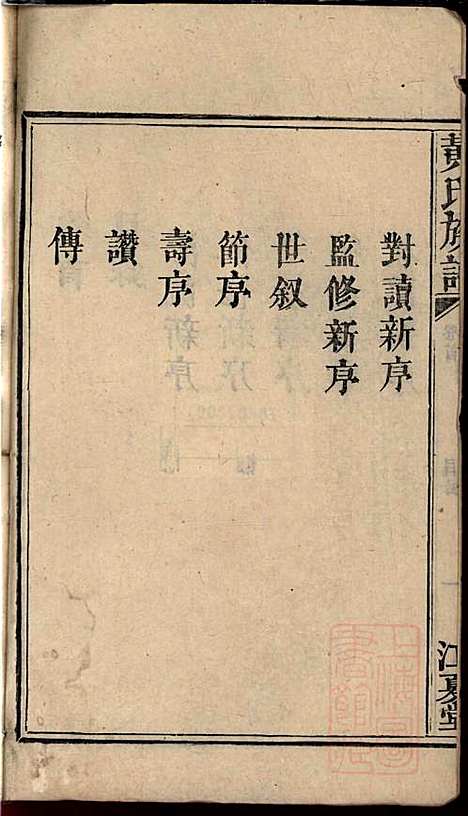 黃氏族譜
江夏堂
對讀新序
監修新序
世叙
節序
壽序
讚
傳